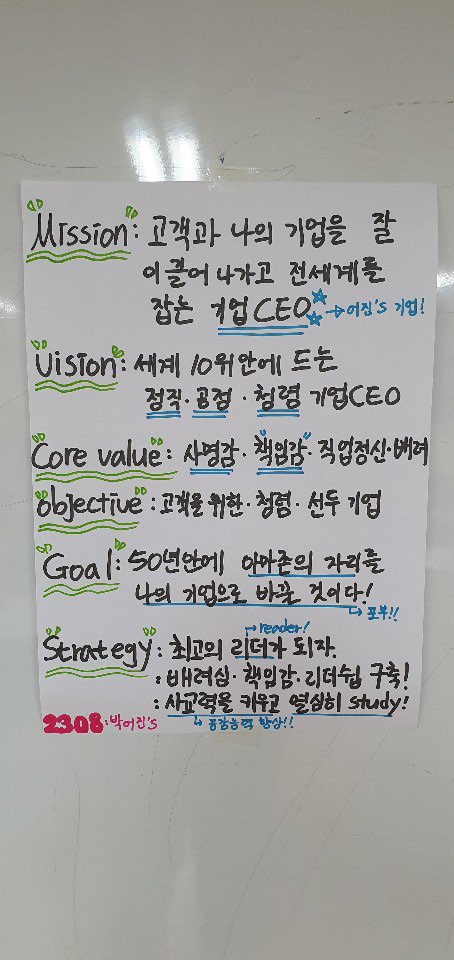 Mission: 고객과 나의 기업을 잘
이끌어 나가고 전세계를
잡는 기업 CEO → 어진's 기업!
Vision: 세계 10위안에 드는
정직·공정·청렴 기업CEO
Core value: 사명감·"책임감"·직업정신·배려
objective: 고객을 위한·청렴·선두 기업
Goal: 50년안에 아마존의 자리를
나의 기업으로 바꿀 것이다!
↳ 포부!!
↱ reader!
Strategy: 최고의 리더가 되자.
: 배려심·책임감·리더쉽 구축!
: 사교력을 키우고 열심히 study!
2308:박어진's ↳ 공감능력 향상!!